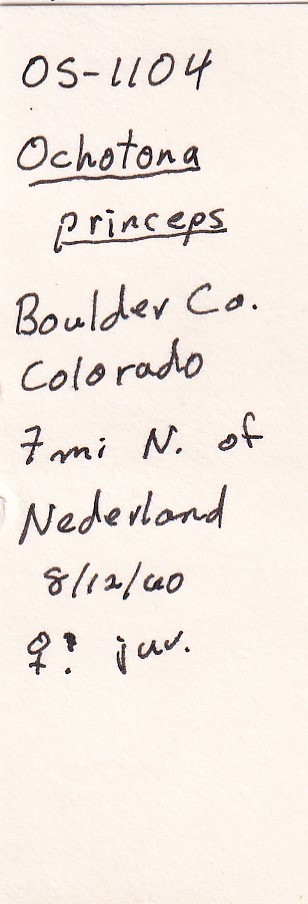 OS-1104
Ochotona
princeps
Boulder Co.
Colorado
7 mi N. of
Nederland
8/12/60
♀? juv.